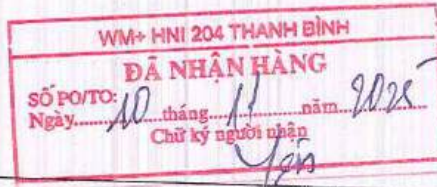 WM+ HNI 204 THANH BÌNH
ĐÃ NHẬN HÀNG
SỐ PO/TO:
Ngày 10 tháng 11 năm 2025
Chữ ký người nhận
Yến